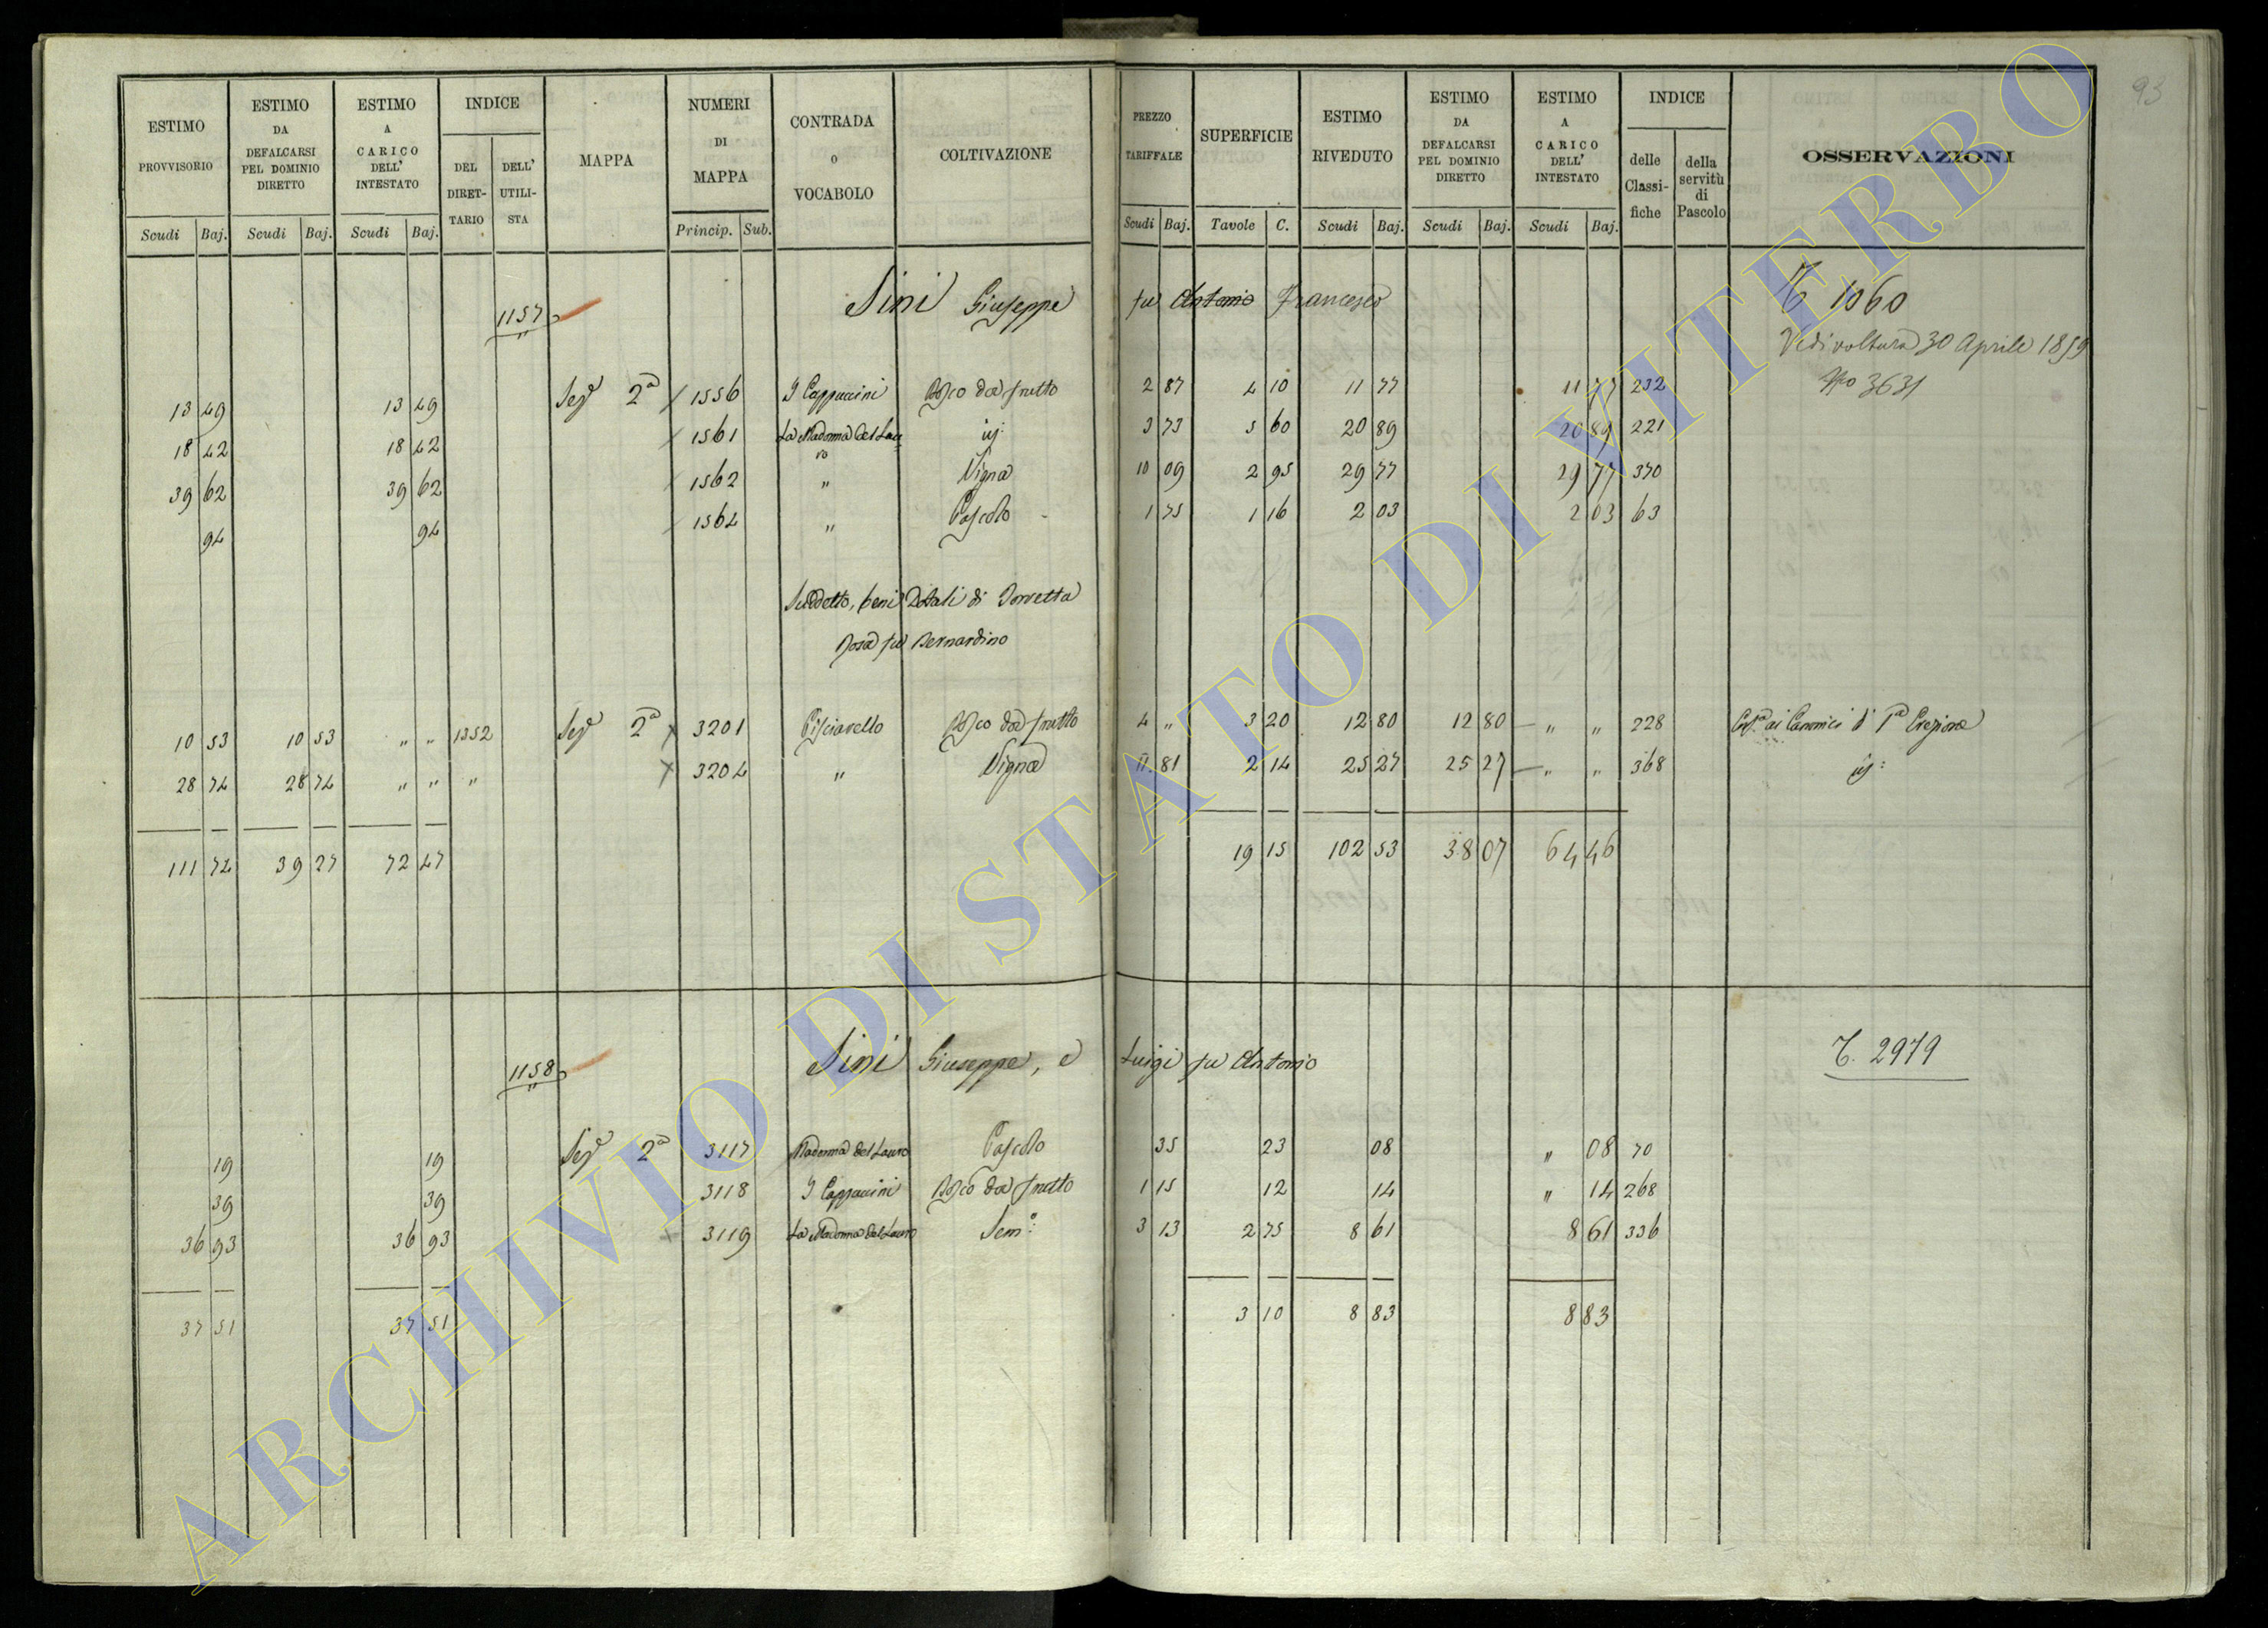 93
ESTIMO PROVVISORIO
ESTIMO DA DEFALCARSI PEL DOMINIO DIRETTO
ESTIMO A CARICO DELL' INTESTATO
INDICE
DEL DIRET-TARIO
DELL' UTILI-STA
MAPPA
NUMERI DI MAPPA
CONTRADA o VOCABOLO
COLTIVAZIONE
PREZZO TARIFFALE
SUPERFICIE
ESTIMO RIVEDUTO
ESTIMO DA DEFALCARSI PEL DOMINIO DIRETTO
ESTIMO A CARICO DELL' INTESTATO
INDICE
delle Classi-fiche
della servitù di Pascolo
OSSERVAZIONI
Scudi Baj. Scudi Baj. Scudi Baj. Princip. Sub. Scudi Baj. Tavole C. Scudi Baj. Scudi Baj. Scudi Baj.
1157 Sini Giuseppe fu Antonio Francesco T 1060
Vedi voltura 30 Aprile 1859
No 3631
13 49 13 49 Sez. 2a 1556 I Cappuccini Bosco da frutto 2 87 4 10 11 77 11 77 232
18 42 18 42 1561 La Madonna del Lauro 3 73 5 60 20 89 20 89 221
39 62 39 62 1562 " Vigna 10 09 2 95 29 77 29 77 370
94 94 1564 " Pascolo 1 75 1 16 2 03 2 03 63
Suddetto, beni Dotali di Porretta
Rosa fu Bernardino
10 53 10 53 " " 1352 Sez. 2a 3201 Pisciarello Bosco da frutto 4 " 3 20 12 80 12 80 " " 228 ai Canonici di 1a Erezione
28 74 28 74 " " " 3204 " Vigna 11 81 2 14 25 27 25 27 " " 368
111 74 39 27 72 47 19 15 102 53 38 07 64 46
1158 Sini Giuseppe, e Luigi fu Antonio T. 2979
19 19 Sez. 2a 3117 Madonna del Lauro Pascolo 35 23 08 " 08 70
39 39 3118 I Cappuccini Bosco da frutto 1 15 12 14 " 14 268
36 93 36 93 3119 La Madonna del Lauro Sem.o 3 13 2 75 8 61 8 61 336
37 51 37 51 3 10 8 83 8 83
ARCHIVIO DI STATO DI VITERBO